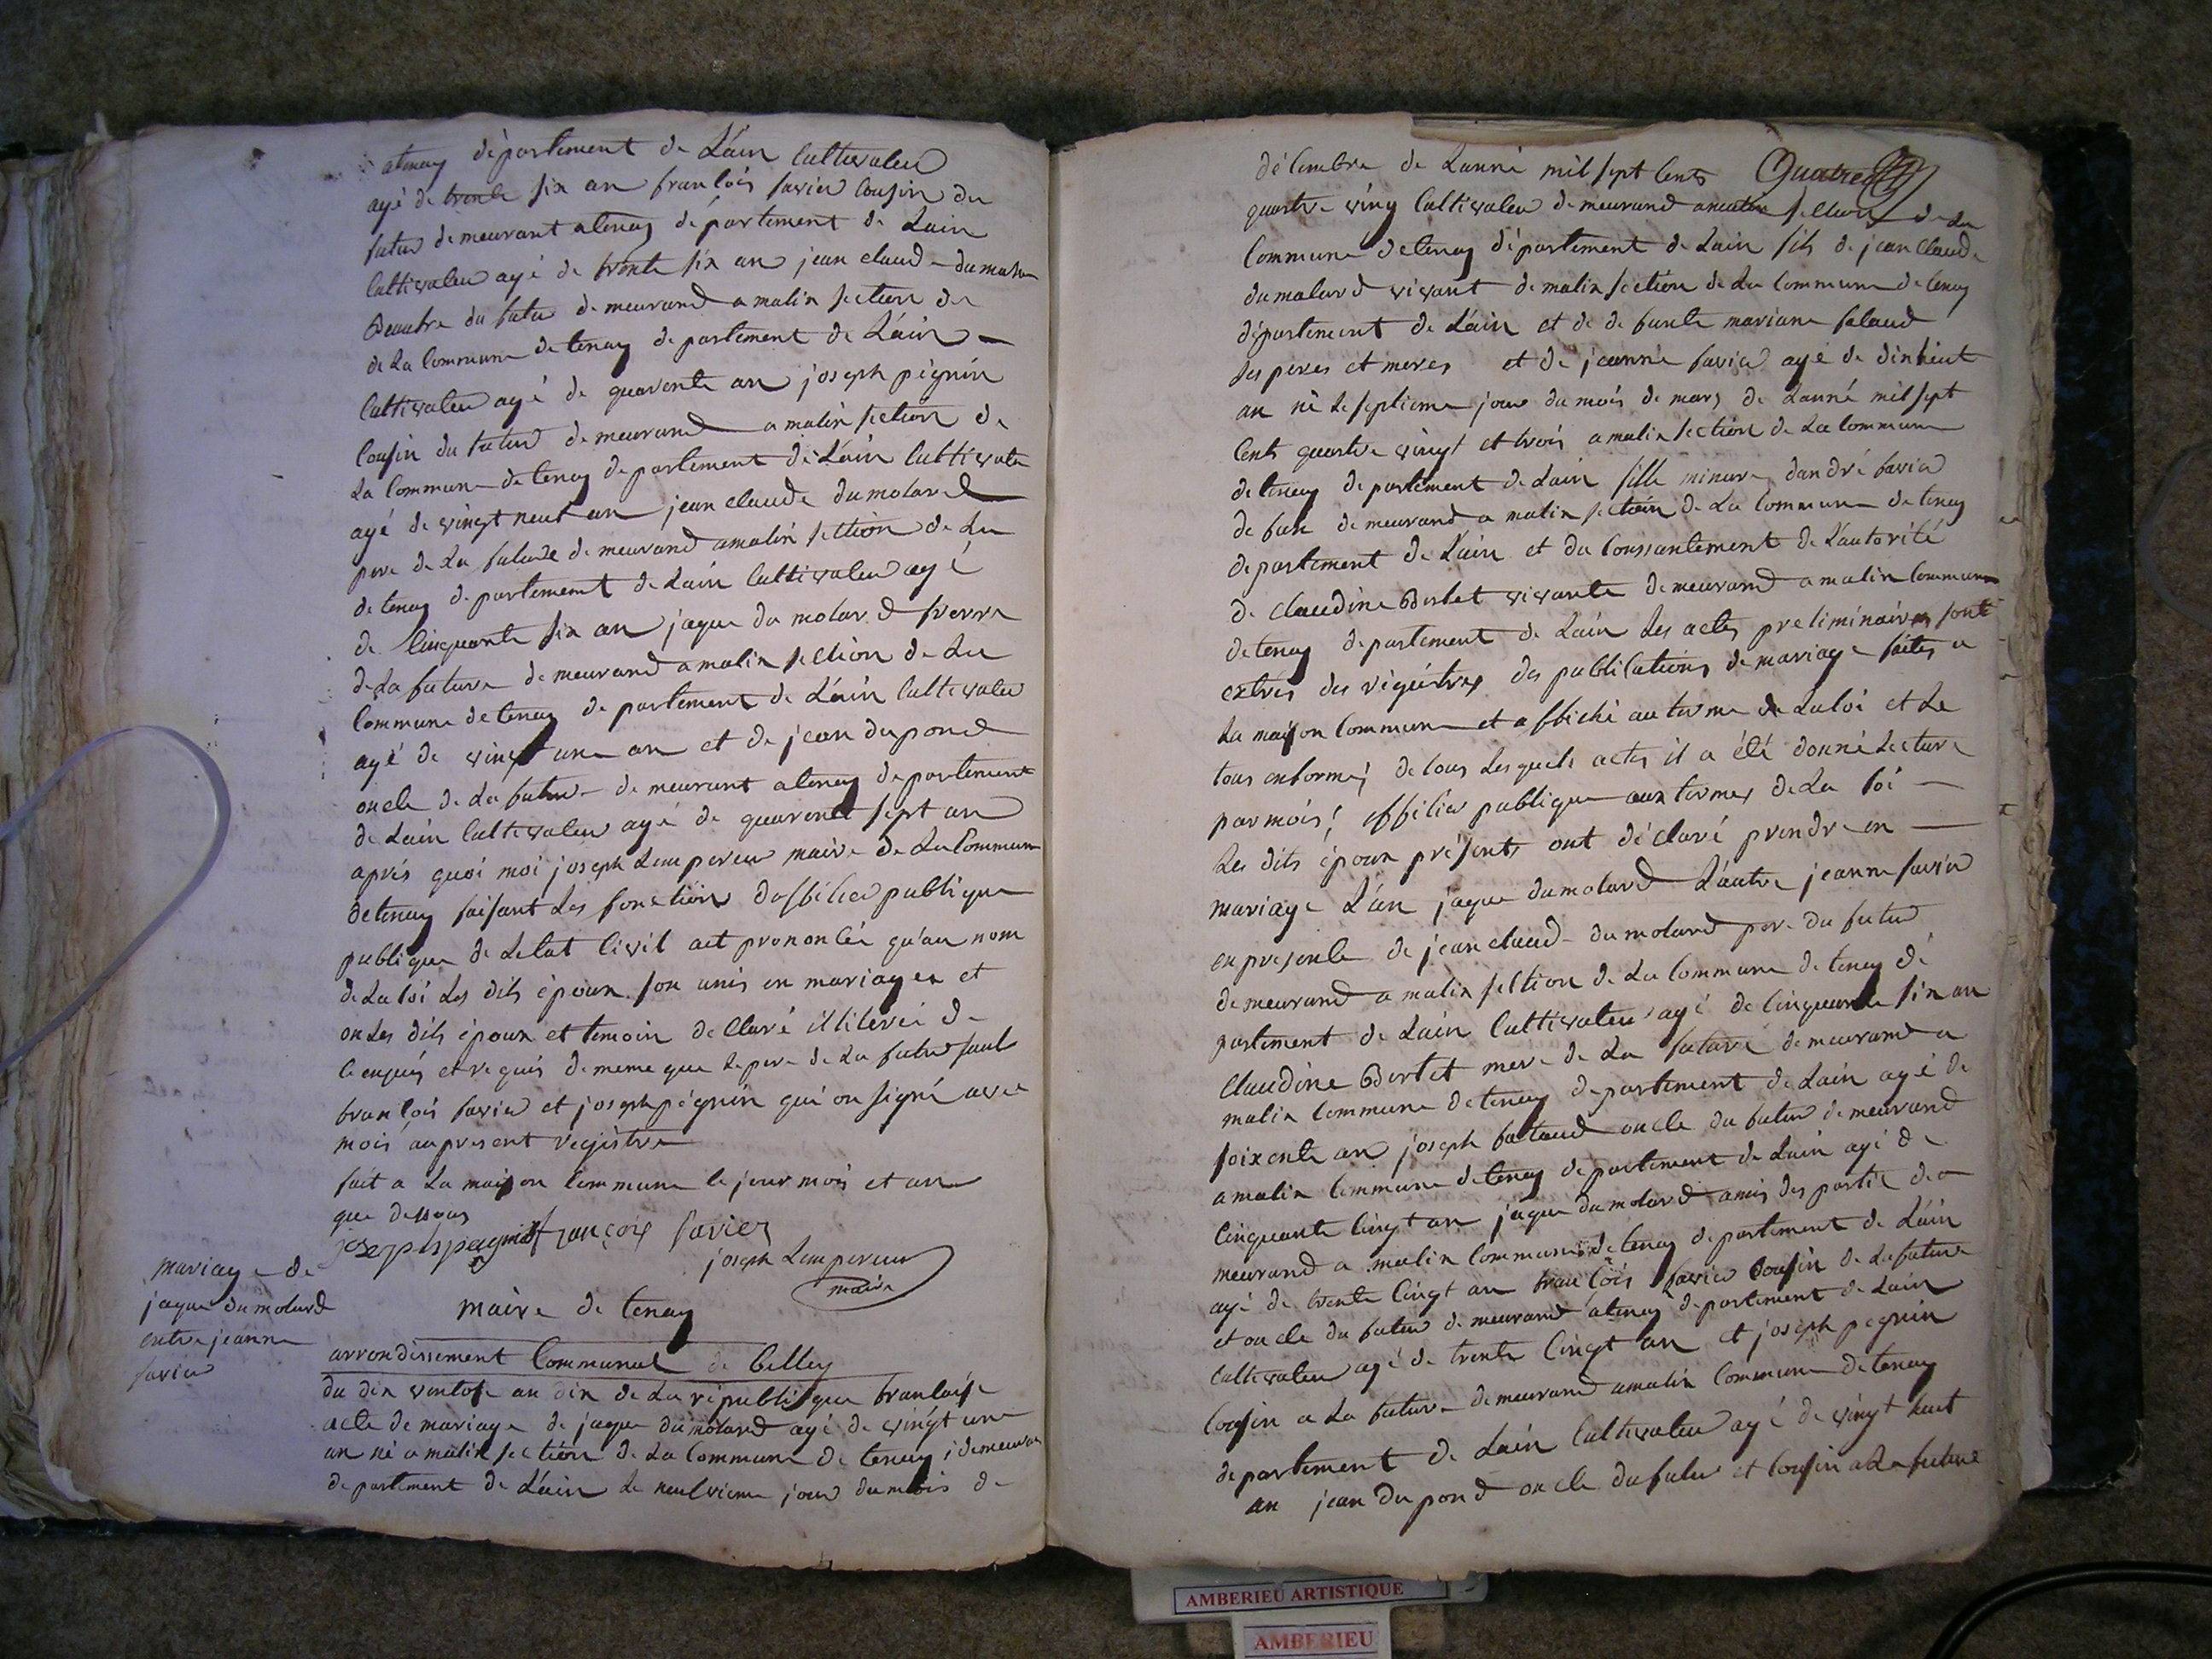 atenay département de Lain Cultivateu
agé de trente six an francois savier Cousin du
futur demeurant atenay département de Lain
Cultivateu agé de trente six an jean claud
du futur demeurand a malix section de
de La Commune de tenay departement de Láin
Cultivateu agé de quarente an joseph pégnin
Cousin du futur demeurand a malix section de
La Commune de tenay departement de Láin Cultivate
agé de vingt neuf an jean claude dumolard
pere de La future demeurand amalix section de La
de tenay departement de Lain Cultivateu agé
de Cinquante six an jaque du molard frerre
de La future demeurand a malix section de La
Commune de tenay departement de Láin Cultivateu
agé de vingt une an et de jean dupond
oncle de La future demeurant atenay departement
de Lain Cultivateu agé de quarente sept an
aprés quoi moi joseph Lempereur maire de La Commune
de tenay faisant Les fonction dofficier publique
publique de Letat Civil ait prononcée qu'au nom
de La loi Les dits époux son unis en mariages et
on Les dits époux et temoin declaré illiterée de
ce enquis et requis de meme que Le pere de La future sauf
francois savier et joseph pégnin qui on signé avec
mois au present registre
fait a La maison Commune le jour mois et an
que dessus
joseph pegnin françois savier
joseph Lempereur
maire
mariage de
jaque dumolard
entre jeanne
savier
maire de tenay
arrondissement Communal de belley
du dix ventose an dix de La république francaise
acte de mariage de jaque dumolard agé de vingt une
an né a malix section de La Commune de tenay
departement de Láin Le neufvieme jour du mois de
décembre de Lanné mil sept Cents
quartre ving Cultivateu demeurand section de La
Commune de tenay département de Lain fils de jean Claude
dumolard vivant de malix section de La Commune de tenay
département de Láin et de defunte mariane falaud
ses peres et meres et de jeanne savier agé de dixhuit
an né Le septieme jour du mois de mars de Lanné mil sept
Cents quartre vingt et trois a malix section de La Commune
de tenay departement de Lain fille minure dandré savier
de fun demeurand a malix section de La Commune de tenay
departement de Láin et du Conssantement de Lautorité
de claudine Bertet vivante demeurand a malix Commune
de tenay departement de Lain Les actes preliminaires sont
extres des régistres des publications de mariage faites a
La maison Commune et affiché au terme de La loi et Le
tous en forme; de tous Lesquels actes il a été donné Lecture
par mois; officier publique aux termes de La loi
Les dits époux présents ont déclaré prendre en
mariage L'un jaque dumolard L'autre jeanne savier
en presente de jean claud dumolard pere du futur
demeurand a malix section de La Commune de tenay dé
partement de Lain Cultivateu agé de Cinquante six an
Claudine Bertet mere de La future demeurand a
malix Commune de tenay departement de Lain agé de
soixente an joseph falaud oncle du futur demeurand
a malix Commune de tenay departement de Lain agé de
Cinquante Cinqt an jaque dumolard amis des partie de
meurand a malix Commune de tenay departement de Láin
agé de trente Cinqt an francois savier Cousin de La future
et oncle du futur demeurand atenay departement de Lain
Cultivateu agé de trente Cinqt an et joseph pegnin
Cousin a La future demeurand amalix Commune de tenay
departement de Lain Cultivateu agé de vingt huit
an jean du pond oncle du futur et Cousin a La future
AMBERIEU ARTISTIQUE
AMBERIEU